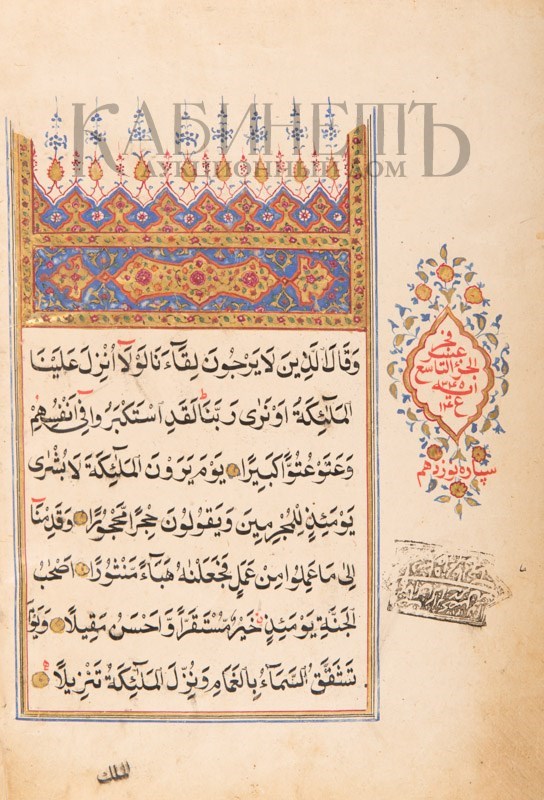 КАБИНЕТЪ
АУКЦИОННЫЙ ДОМ
وَقَالَ الَّذِينَ لَا يَرْجُونَ لِقَآءَنَا لَوْلَآ اُنْزِلَ عَلَيْنَا
الْمَلٰٓئِكَةُ اَوْ نَرٰى رَبَّنَا لَقَدِ اسْتَكْبَرُوا فِىٓ اَنْفُسِهِمْ
وَعَتَوْ عُتُوًّا كَبِيرًا يَوْمَ يَرَوْنَ الْمَلٰٓئِكَةَ لَا بُشْرٰى
يَوْمَئِذٍ لِلْمُجْرِمِينَ وَيَقُولُونَ حِجْرًا مَحْجُورًا وَقَدِمْنَآ
اِلٰى مَا عَمِلُوا مِنْ عَمَلٍ فَجَعَلْنٰهُ هَبَآءً مَنْثُورًا اَصْحٰبُ
الْجَنَّةِ يَوْمَئِذٍ خَيْرٌ مُسْتَقَرًّا وَّاَحْسَنُ مَقِيلًا وَيَوْمَ
تَشَقَّقُ السَّمَآءُ بِالْغَمَامِ وَنُزِّلَ الْمَلٰٓئِكَةُ تَنْزِيلًا
عشر
الجزء التاسع
سپاره نوزدهم